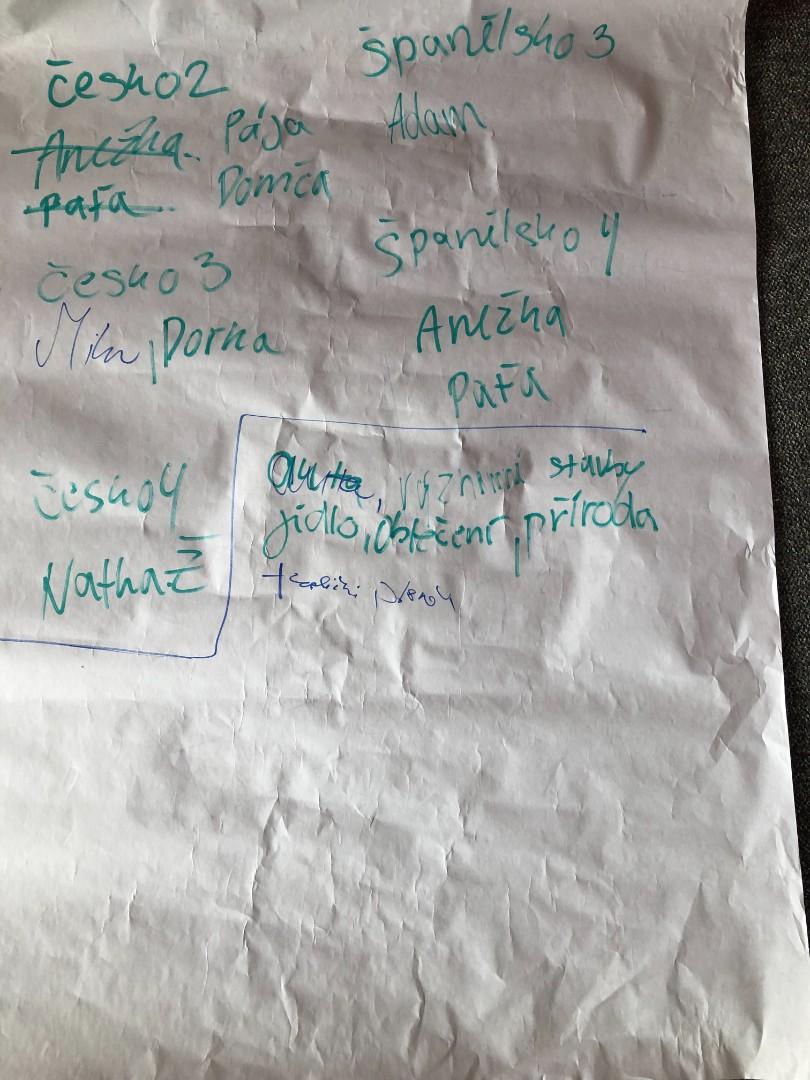 česko2
Anežka. Pája
paťa. Domča
česko 3
Mila, Dorka
česko4
Natka Ž
španělsko 3
Adam
Španělsko 4
Anežka
Paťa
auta, významné stavby
jídlo, oblečení, příroda